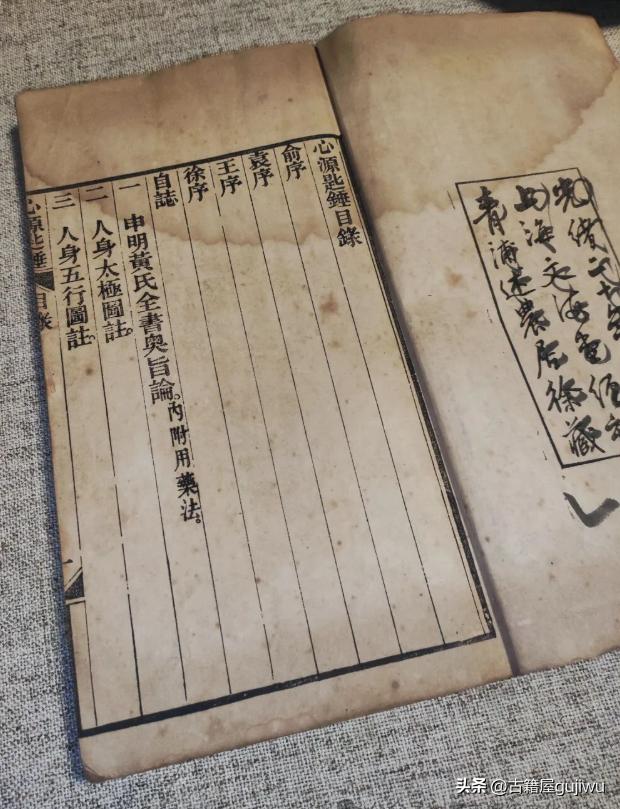 光緒二十
上海文海
青浦述農居徐藏
心源匙錘目錄
俞序
袁序
王序
徐序
自誌
一 申明黃氏全書奧旨論。內附用藥法。
二 人身太極圖註。
三 人身五行圖註。
心源匙錘 目錄 一
头条 @古籍屋gujiwu